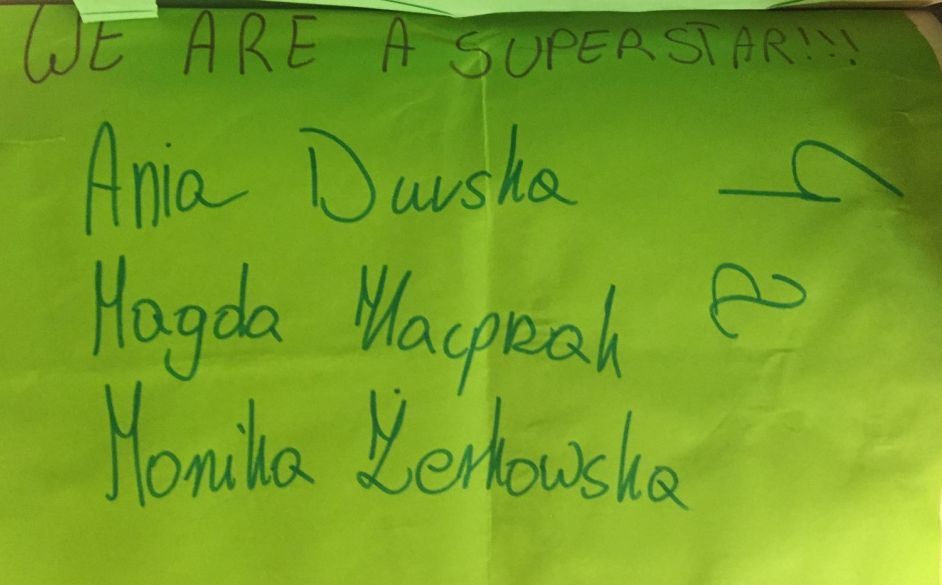 WE ARE A SUPERSTAR!!!
Ania Durska
Magda
Monika Żerkowska